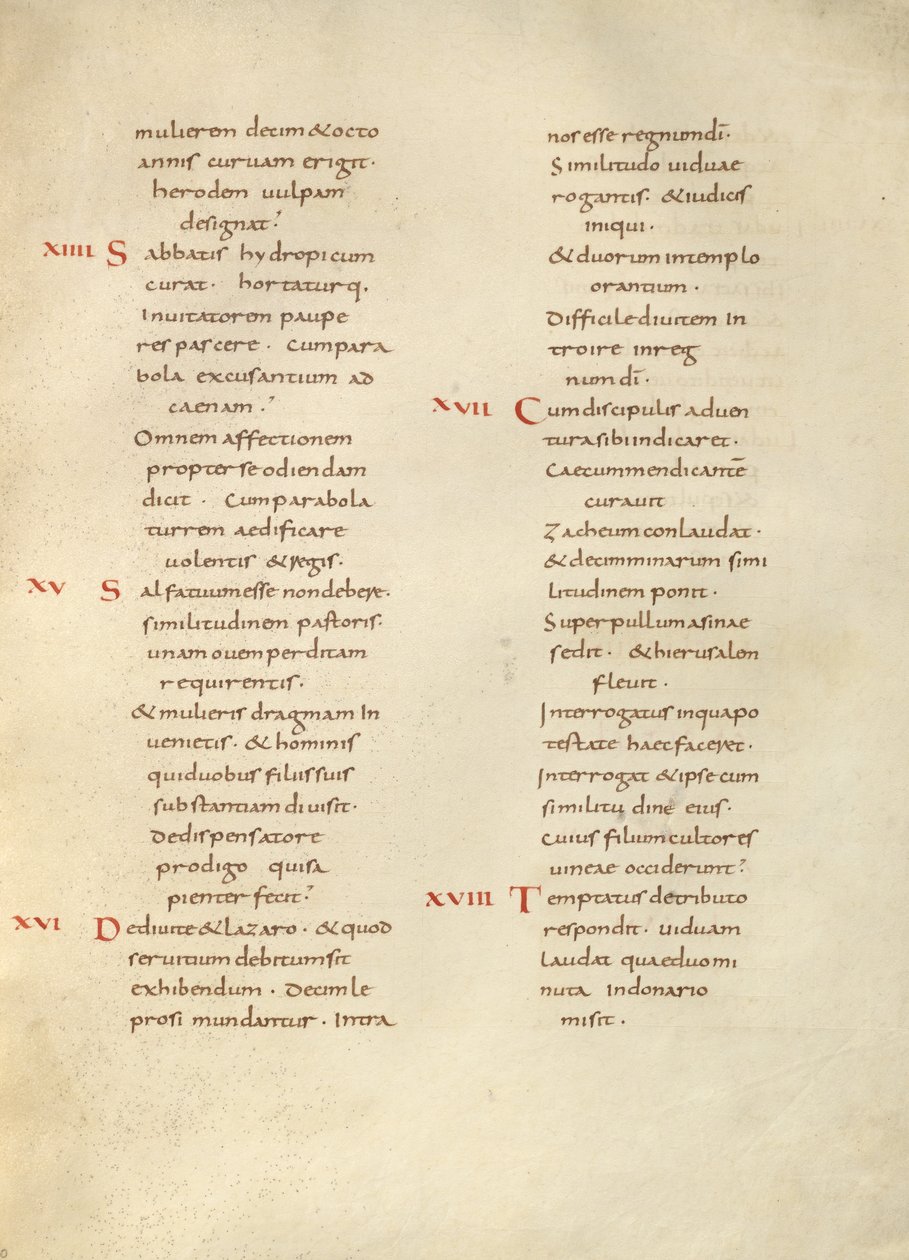 mulierem decim & octo
annis curuam erigit·
herodem uulpam
designat·
XIIII Sabbatis hydropicum
curat· hortaturq.
Inuitatorem paupe
res pascere· Cumpara
bola excusantium ad
caenam·
Omnem affectionem
propter se odiendam
dicit· Cum parabola
turrem aedificare
uolentis & regis·
XV Sal fatuum esse non debere·
similitudinem pastoris·
unam ouem perditam
requirentis·
& mulieris dragmam In
uenietis· & hominis
qui duobus filiis suis
substantiam diuisit·
De dispensatore
prodigo qui sa
pienter fecit·
XVI De diuite & lazaro· & quod
seruitium debitum sit
exhibendum· Decim le
prosi mundantur· Intra
nos esse regnum dī·
Similitudo uiduae
rogantis· & iudicis
iniqui·
& duorum in templo
orantium·
Difficile diuitem In
troire in reg
num dī·
XVII Cum discipulis aduen
tura sibi indicaret·
Caecum mendicantē
curauit
Zacheum conlaudat·
& decim minarum simi
litudinem ponit·
Super pullum asinae
sedit· & hierusalem
fleuit·
Interrogatus in qua po
testate haec faceret·
Interrogat & ipse cum
similitudine eius·
Cuius filium cultores
uineae occiderunt·
XVIII Temptatus de tributo
respondit· uiduam
laudat quae duo mi
nuta In donario
misit·